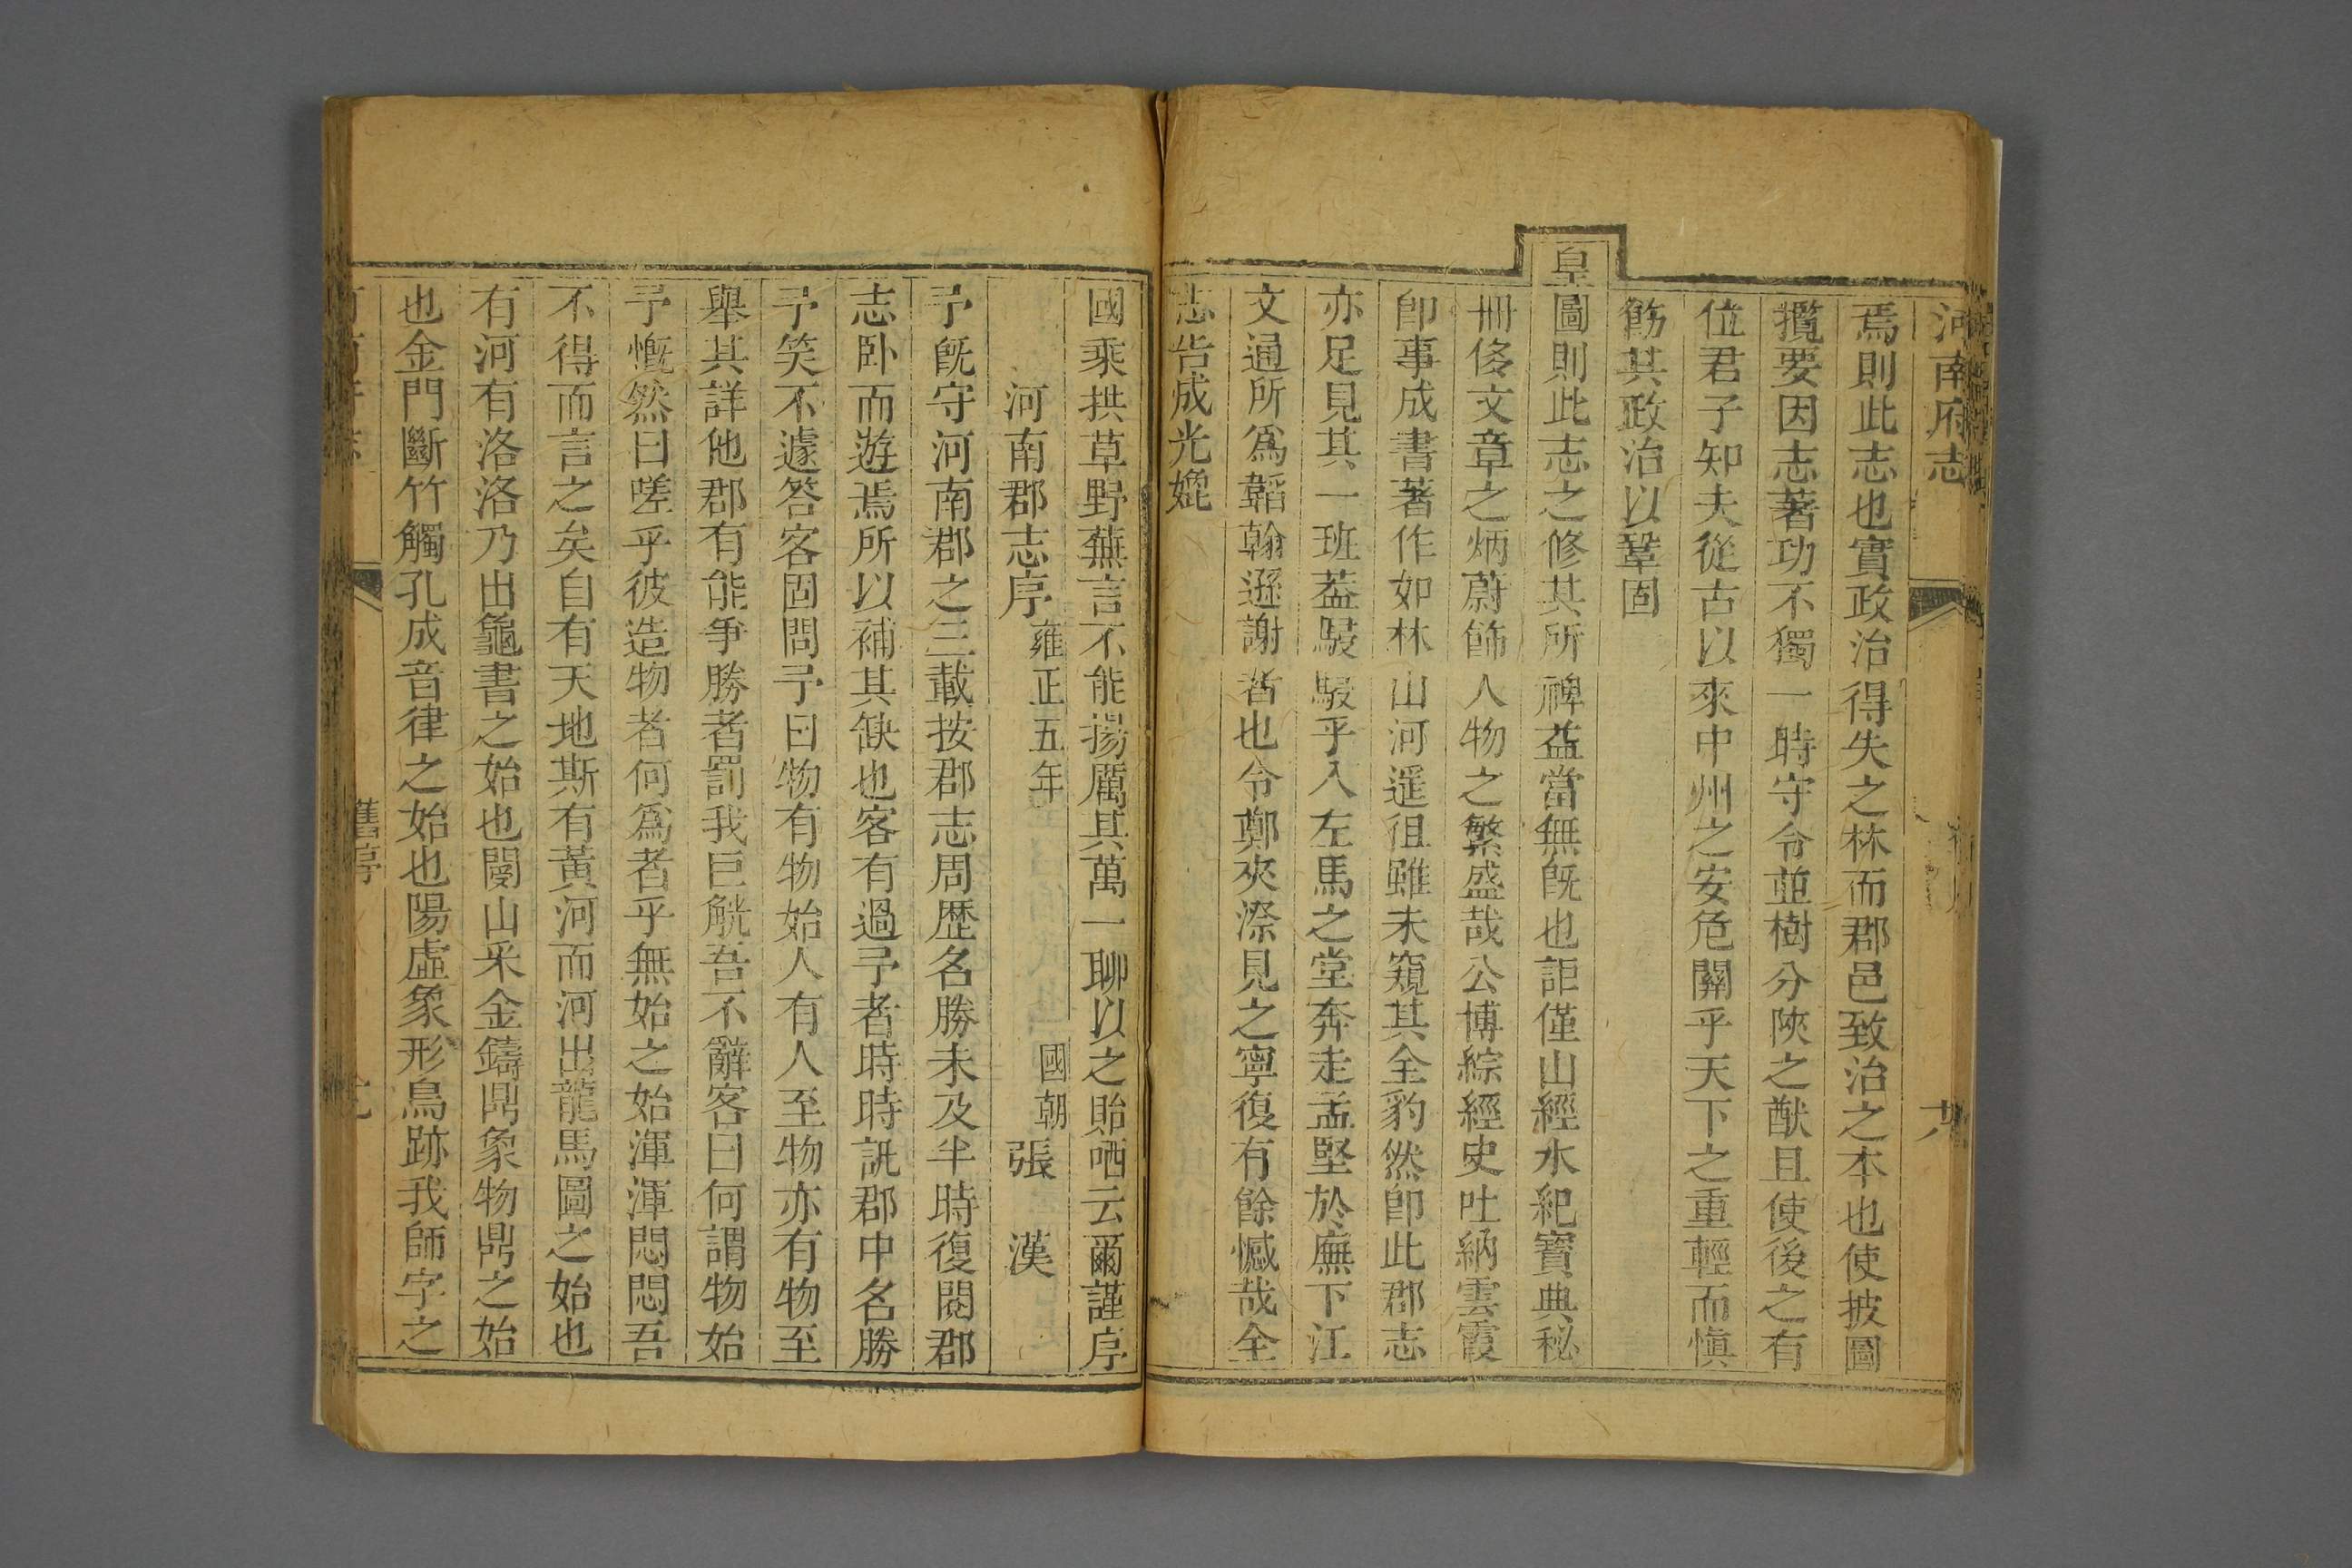 河南府志
六
焉則此志也實政治得失之林而郡邑致治之本也使披圖
攬要因志著功不獨一時守令並樹分陝之猷且使後之有
位君子知夫從古以來中州之安危關乎天下之重輕而慎
飭其政治以鞏固
皇圖則此志之修其所裨益當無旣也詎僅山經水紀寶典秘
冊侈文章之炳蔚飾人物之繁盛哉公博綜經史吐納雲霞
卽事成書著作如林山河遥徂雖未窺其全豹然卽此郡志
亦足見其一班葢駸駸乎入左馬之堂奔走孟堅於廡下江
文通所爲韜翰遜謝者也令鄭夾漈見之寧復有餘憾哉全
志告成光媲
國乘拱草野蕪言不能揚厲其萬一聊以之貽哂云爾謹序
河南郡志序 雍正五年 國朝 張 漢
予旣守河南郡之三載按郡志周歴名勝未及半時復閱郡
志卧而遊焉所以補其缺也客有過予者時時訊郡中名勝
予笑不遽答客固問予曰物有物始人有人至物亦有物至
舉其詳他郡有能爭勝者罰我巨觥吾不辭客曰何謂物始
予慨然曰嗟乎彼造物者何爲者乎無始之始渾渾悶悶吾
不得而言之矣自有天地斯有黃河而河出龍馬圖之始也
有河有洛洛乃出龜書之始也閿山采金鑄鼎象物鼎之始
也金門斷竹觸孔成音律之始也陽虛象形鳥跡我師字之
舊序